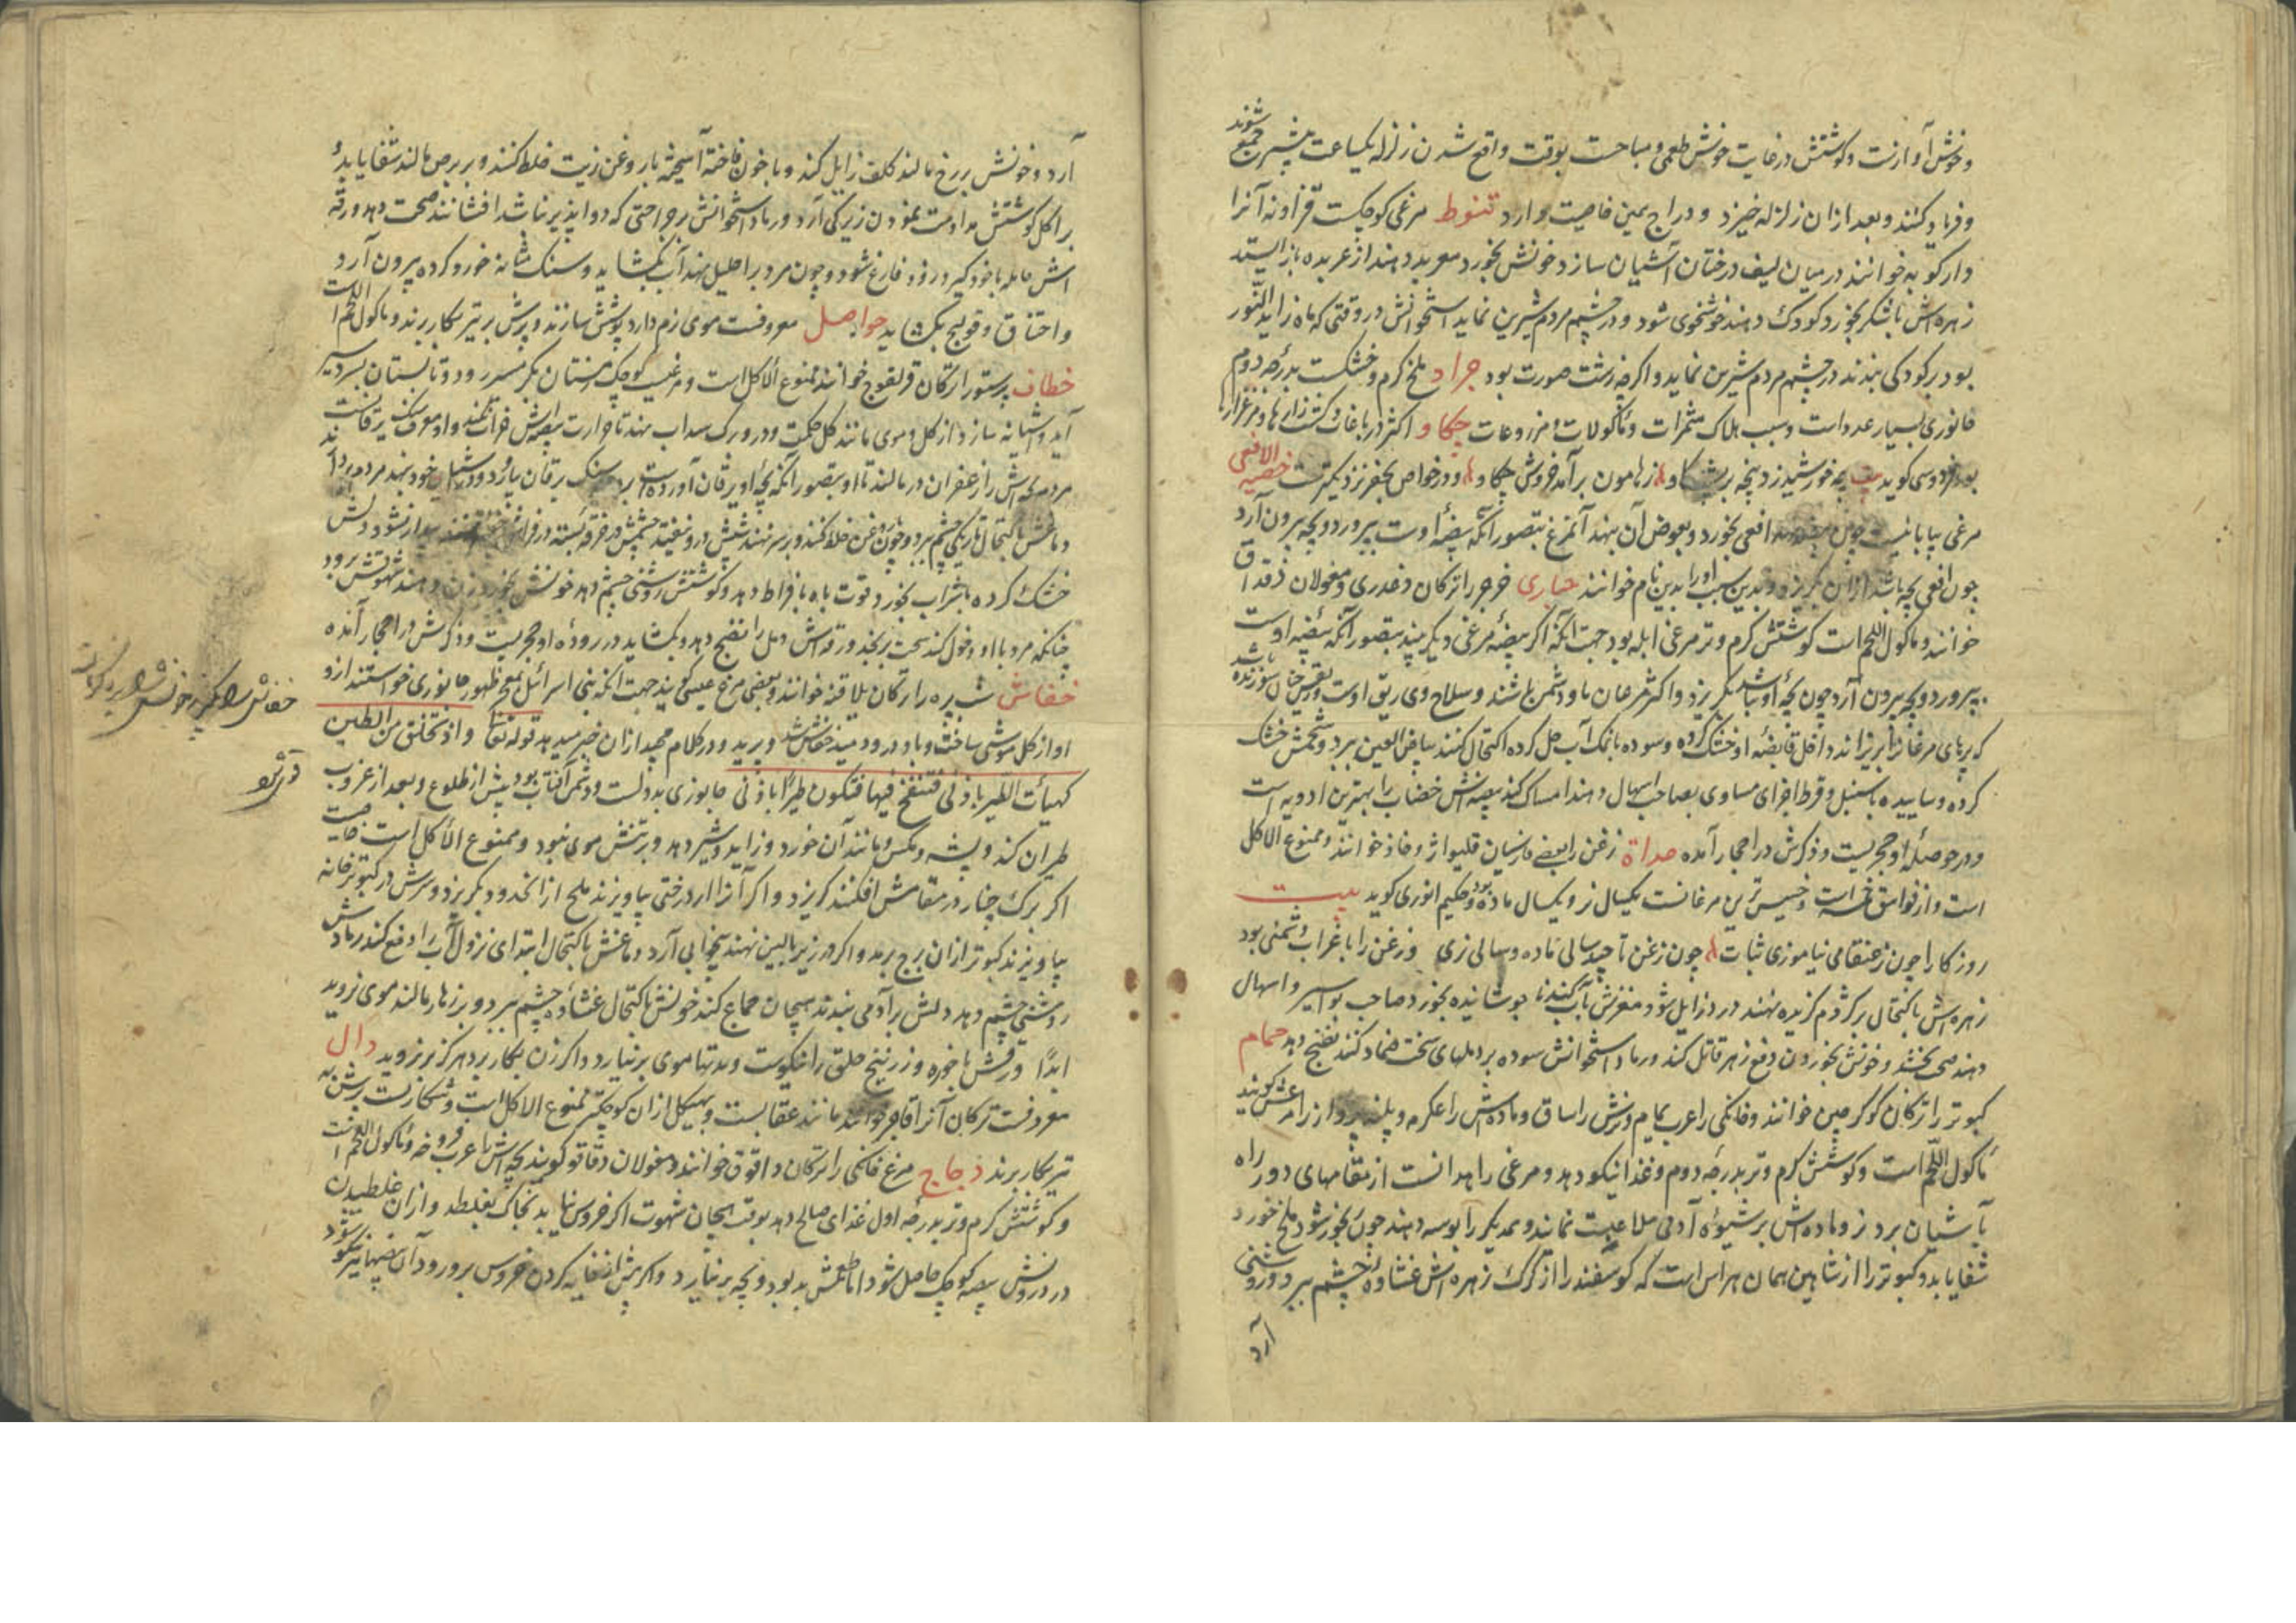 وخوش آوازست وکوشتش در غایت خوش طعمی و مباحست بوقت واقع شدن زلزله یکساعت پیشتر جمع شوند
و فریاد کنند و بعد از آن زلزله خیزد و دراج همین خاصیت دارد تنوط مرغی کوچکست آنرا
خوانند در میان لیف درختان آشیان سازد خونش بخورد معربد دهند از عربده باز ایستد
زهره اش با شکر بخورد کودک دهند خوشخوی شود و در چشم مردم شیرین نماید استخوانش در وقتی که ماه زاید النور
بود بر کودکی بندند در چشم مردم شیرین نماید و اکرچه زشت صورت بود جراد ملخ کرم و خشکست بدرجه دوم
جانوری بسیار عدد است و سبب هلاک مثمرات و مأکولات و مزروعات چکاو اکثر در باغات و کشت زارها و مرغزارها
بود فردوسی کوید چه خورشید زد پنجه بر پشت کاو ز هامون برآمد خروش چکاو و در خواص بجغرز نزدیکترست خصیه الافعی
مرغی بیابانیست چون افعی بخورد و بعوض آن نهد آنمرغ بتصور آنکه بیضه اوست بپرورد و بچه بیرون آرد
چون افعی بچه باشد از آن بکریزد و بدین سبب او را بدین نام خوانند حباری خرجر را ترکان و مغولان
خوانند و مأکول اللحم است کوشتش کرم و تر مرغی ابله بود جهت آنکه اکر بیضه مرغی دیکر بیند بتصور آنکه بیضه اوست
بپرورد و بچه بیرون آرد چون بچه او نباشد بکریزد و اکثر مرغان با او دشمن باشند و سلاح وی ریق اوست
که پرهای مرغانرا بریزاند داخل قانصه او خشک کرده و سوده با نمک آب حل کرده اکتحال کنند بیاض العین ببرد و شحمش خشک
کرده و ساییده با سنبل و قرط اجزای مساوی بصاحب اسهال دهند امساک کند بیضه اش خضاب را بهترین ادویه است
و در حوصله او حجریست و ذکرش در احجار آمده حداة زغن را بعضی فارسیان غلیواژ و خاد خوانند و ممنوع الاکل
است و از فواسق خمسه است و خسیس ترین مرغانست یکسال نر و یکسال ماده بود حکیم انوری کوید بیت
روزکارا چون ز عنقا می نیاموزی ثبات چون زغن تا چند سالی ماده و سالی نری و زغن را با غراب دشمنی بود
زهره اش باکتحال بر کژدم کزیده نهند درد زایل شود مغزش بآب کندنا جوشانیده بخورد صاحب بواسیر و اسهال
دهند صحت بخشد و خونش بخوردن دفع زهر قاتل کند و رماد استخوانش سوده بر دملهای سخت ضماد کنند نضج دهد حمام
کبوتر را ترکان کوکرجین خوانند و خانکی را عرب یمام و نرش را ساق و ماده اش را عکرمه و بلند پرواز را مرعش کویند
مأکول اللحم است و کوشتش کرم و تر بدرجه دوم و غذا نیکو دهد و مرغی راهدانست از مقامهای دور راه
بآشیان برد نر و ماده اش بر شیوه آدمی ملاعبت نمایند و همدیکر را بوسه دهند چون رنجور شود ملخ خورد
شفا یابد و کبوتر را از شاهین همان هراس است که کوسفند را از کرک زهره اش غشاوه چشم ببرد و روشنی
آرد
آرد و خونش بر رخ مالند کلف زایل کند و با خون فاخته آمیخته با روغن زیت خلط کنند و بر برص مالند شفا یابد و
بر اکل کوشتش مداومت نمودن زیرکی آرد و رماد استخوانش بر جراحتی که دوا پذیر نباشد افشانند صحت دهد و رقه
اش حامله با خود کیرد زود فارغ شود و چون مرد بر احلیل نهد آب بکشاید و سنک مثانه خورد کرده بیرون آرد
و اختناق و قولنج بکشاید حواصل معروفست موی نرم دارد پوشش سازند و پرش بر تیر بکار برند و مأکول اللحم است
خطاف پرستو را ترکان قرلغوج خوانند ممنوع الاکل است و مرغیست کوچک زمستان بکرمسیر رود و تابستان بسردسیر
آید و آشیانه سازد از کل و موی مانند کل حکمت و در و برک سداب نهد تا حرارت بیضه اش
بچه اش را زعفران درمالند تا او بتصور آنکه بچه او یرقان آورده است سنک یرقان بیاورد و در آشیان خود نهد مردم بردارند
دماغش باکتحال تاریکی چشم ببرد و خون و روغن خلط کنند و بر سر نهند چشمش در خرقه بسته در فراش بیدار نشود دلش
خشک کرده با شراب بخورد قوت باه بافراط دهد و کوشتش روشنی چشم دهد خونش بخورد زن دهند شهوتش برود
چنانکه مرد با او دخول کند سخت برنجد و رقه اش دمل را نضج دهد و بکشاید در روده او حجریست و ذکرش در احجار آمده
خفاش شب پره را ترکان یلاقنه خوانند و بعضی مرغ عیسی کویند جهت آنکه بنی اسرائیل بمعجز ظهور جانوری خواستند از و
او از کل موشی ساخت و باد درو دمید خفاش شد و پرید و در کلام مجید از آن خبر میدهد قوله تعالی و اذ تخلق من الطین
کهیئة الطیر باذنی فتنفخ فیها فتکون طیرا باذنی جانوری بددلست و دشمن آفتاب بود پیش از طلوع و بعد از غروب
طیران کند و پشه و مکس و مانند آن خورد و زاید و شیر دهد و بر تنش موی نبود و ممنوع الاکل است خاصیت
اکر برک چنار در مقامش افکنند کریزد و اکر آنرا از درختی بیاویزند ملخ از آنحدود بکریزد و سرش در کبوترخانه
بیاویزند کبوتر از آن برج نرمد و اکر در زیر بالین نهند بیخوابی آرد دماغش باکتحال ابتدای نزول آب را دفع کند رمادش
روشنی چشم دهد دلش بر آدمی بندند هیجان جماع کند خونش باکتحال غشاوه چشم ببرد و بر زهار مالند موی نروید
ابدا و رقش با خوره و زرنیخ حلق را نیکوست و مدتها موی برنیارد و اکر زن بکار برد هرکز برنروید دال
معروفست ترکان آنرا قاجر خوانند مانند عقابست و بهیکل از آن کوچکتر ممنوع الاکل است و شکاریست پرش به
تیر بکار برند دجاج مرغ خانکی را ترکان داقوق خوانند و مغولان دقاقو کویند بچه اش را عرب فروخه و مأکول اللحم است
و کوشتش کرم و تر بدرجه اول غذای صالح دهد بوقت هیجان شهوت اکر خروس نیابد بخاک بغلطد و از آن غلطیدن
در درونش بیضه کوچک حاصل شود اما طعمش بد بود و بچه برنیارد و اکر پیش از خایه کردن خروس برو رود آن بیضها نیز نیکو شود